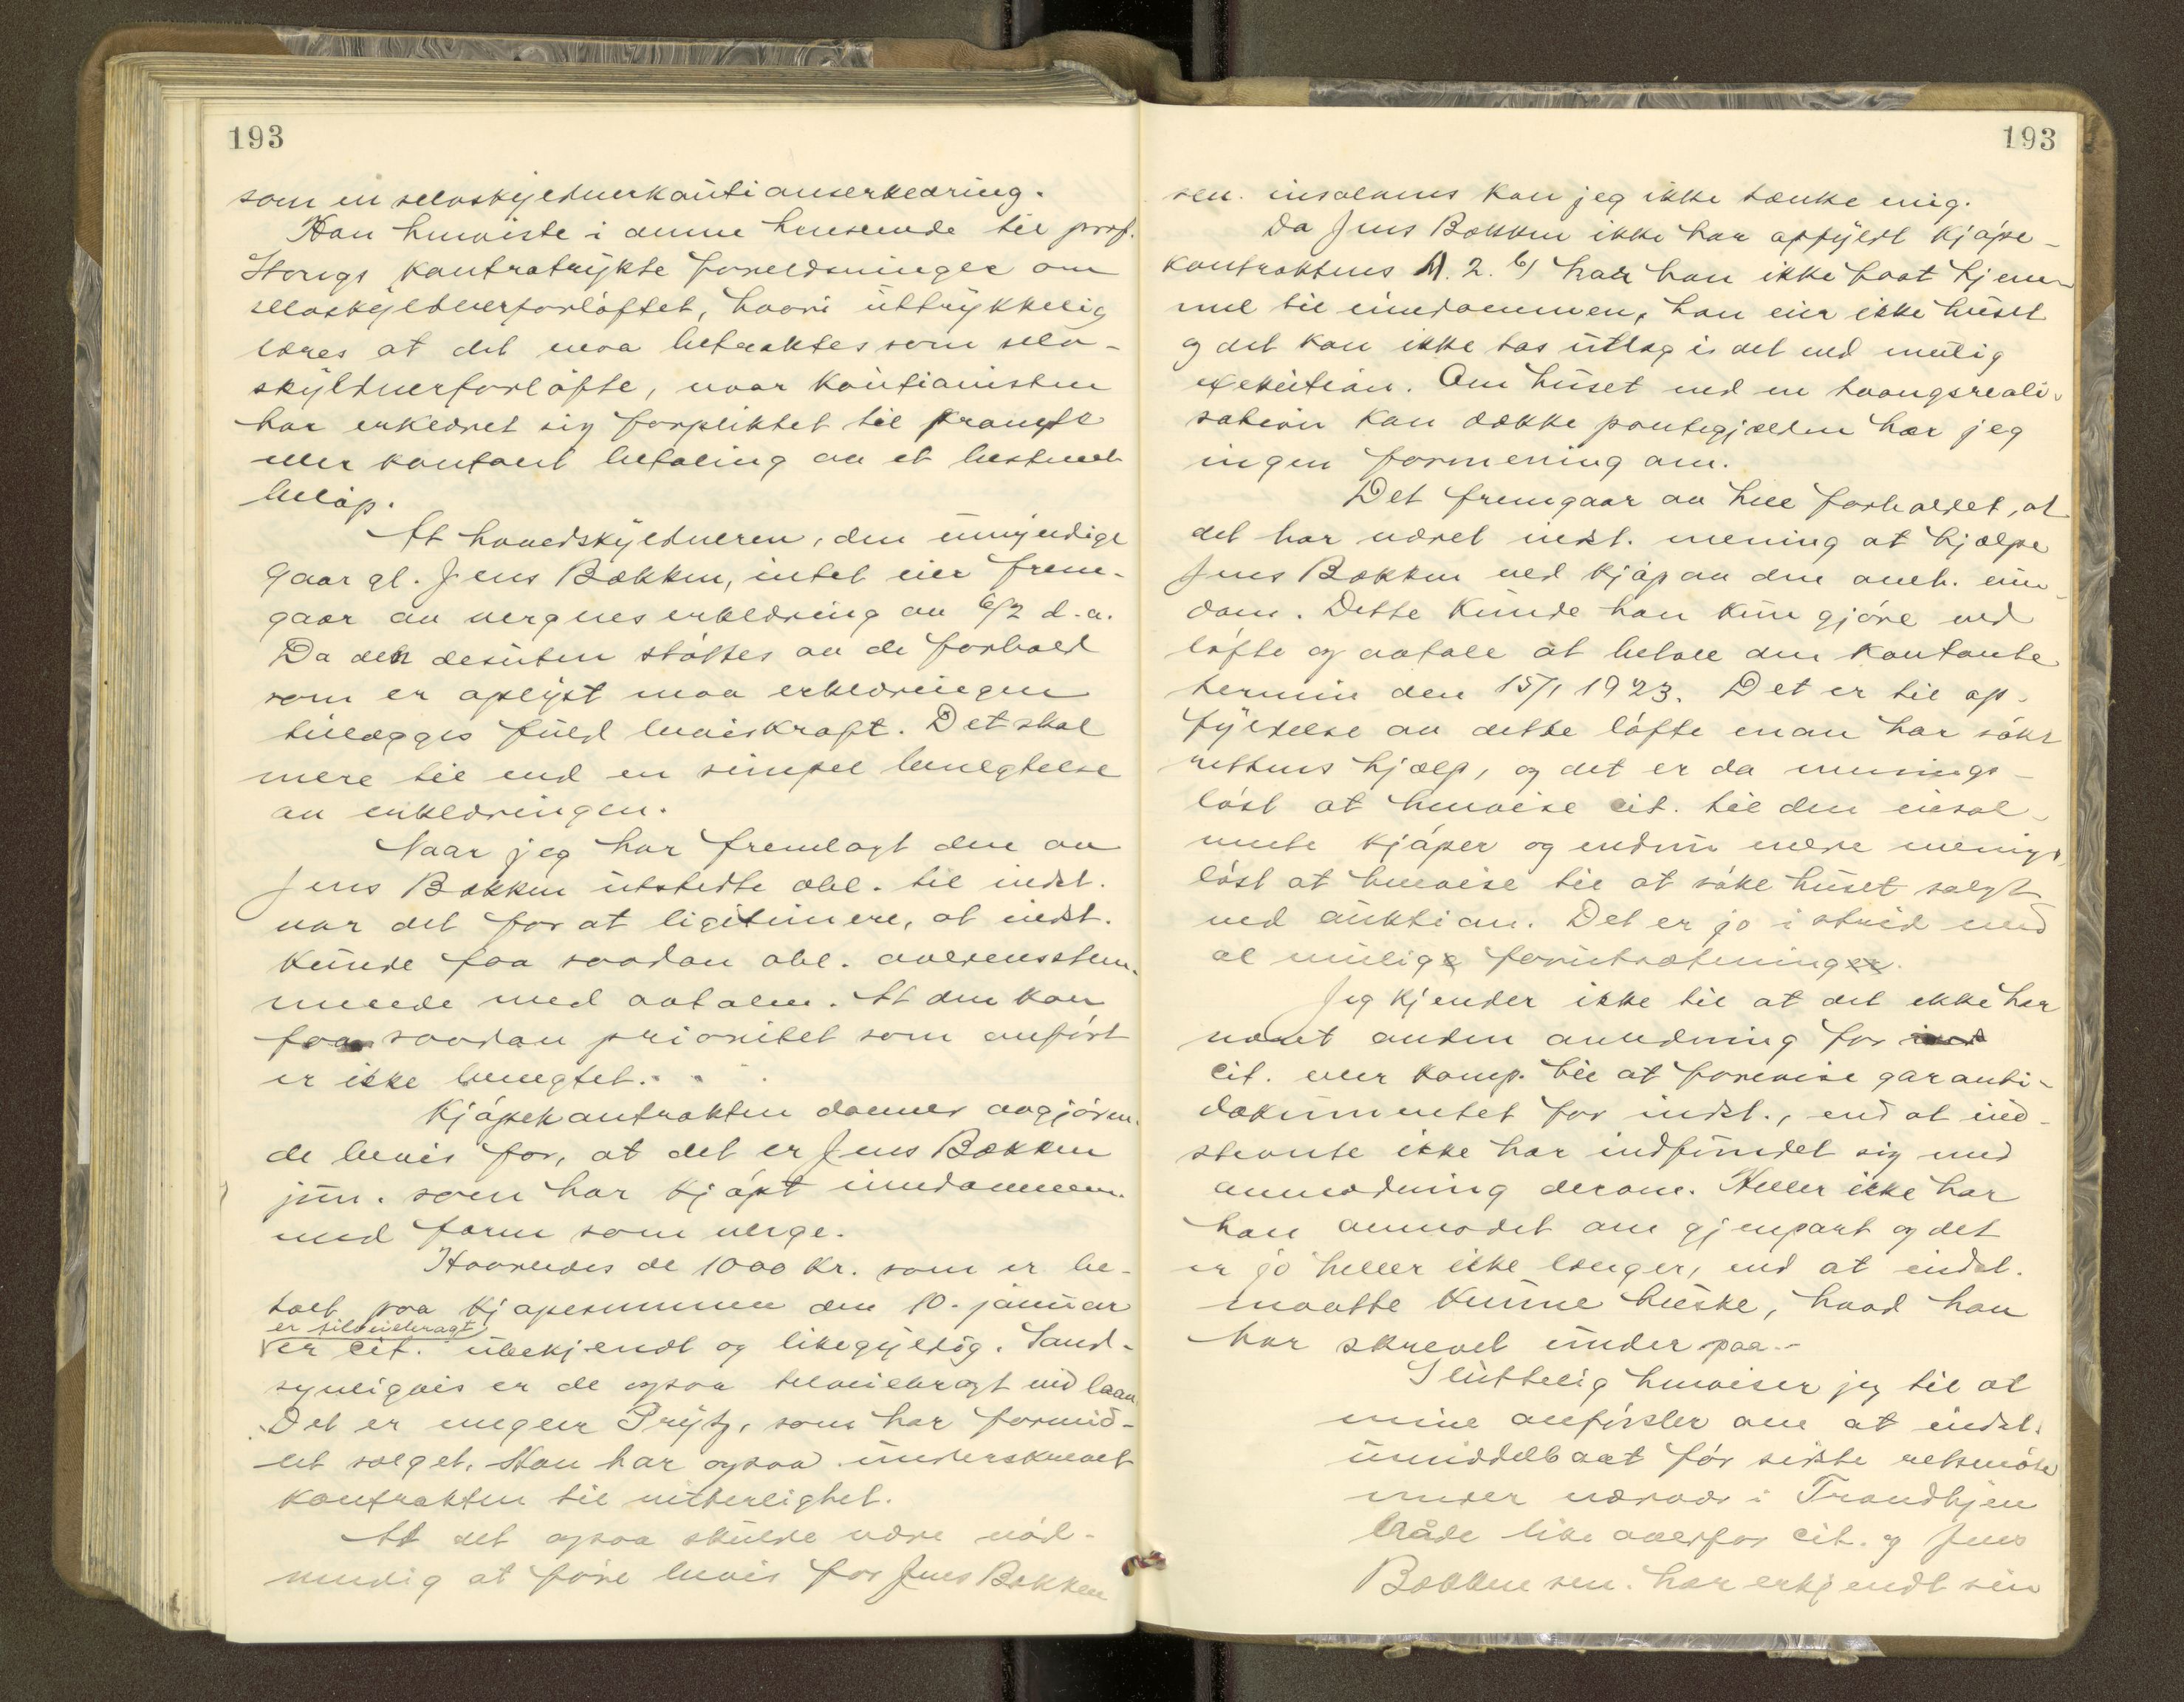 193
som en selvskyldnerkautionserklæring.
Han henviste i denne henseende til prof.
Stangs kontratrykte forelæsninger om
selvskyldnerforløftet, hvori uttrykkelig
læres at det maa betraktes som selv-
skyldnerforløfte, naar kautionisten
har erklæret sig forpliktet til prompte
eller kontant betaling av et bestemt
beløp.
At hovedskyldneren, den umyndige
gaar gl. Jens Bækken, intet eier frem-
gaar av vergens erklæring av 6/2 d.a.
Da den desuten støttes av de forhold
som er oplyst maa erklæringen
tillægges fuld beviskraft. Det skal
mere til end en simpel benegtelse
av erklæringen.
Naar jeg har fremlagt den av
Jens Bækken utstedte obl. til indst.
var det for at ligitimere, at indst.
kunde faa saadan obl. overensstem-
mende med avtalen. At den kan
faa saadan prioritet som anført
er ikke benegtet.
Kjøpekontrakten danner avgjøren-
de bevis for, at det er Jens Bækken
jun. som har kjøpt eiendommen
med faren som verge.
Hvorledes de 1000 kr. som er be-
talt paa kjøpesummen den 10. januar
er tilveiebragt
er cit. ubekjendt og likegyldig. Sand-
synligvis er de ogsaa tilveiebragt ved laan.
Det er megler Prytz, som har formid-
let salget. Han har ogsaa underskrevet
kontrakten til vitterlighet.
At det ogsaa skulde være nød-
vendig at føre bevis for Jens Bækken
193
sen. insolvens kan jeg ikke tænke mig.
Da Jens Bækken ikke har opfyldt kjøpe-
kontraktens A. 2. b) har han ikke faat hjem-
mel til eiendommen, han eier ikke huset
og det kan ikke tas utlæg i det ved mulig
exekution. Om huset ved en tvangsreali-
sation kan dække pantegjælden har jeg
ingen formening om.
Det fremgaar av hele forholdet, at
det har været indst. mening at hjælpe
Jens Bækken ved kjøp av den omh. eien-
dom. Dette kunde han kun gjøre ved
løfte og avtale at betale den kontante
termin den 15/1 1923. Det er til op-
fyldelse av dette løfte man har søkt
rettens hjælp, og det er da menings-
løst at henvise cit. til den insol-
vente kjøper og endnu mere menings-
løst at henvise til at søke huset solgt
ved auktion. Det er jo i strid med
al mulig forutsætning.
Jeg kjender ikke til at det ikke har
været anden anledning for
cit. eller komp. til at forevise garanti-
dokumentet for indst., end at ind-
stevnte ikke har indfundet sig med
anmodning derom. Heller ikke har
han anmodet om gjenpart og det
er jo heller ikke længer, end at indst.
maatte kunne huske, hvad han
har skrevet under paa.-
Sluttelig henviser jeg til at
mine anførsler om at indst.
umiddelbart før sidste retsmøte
under nærvær i Trondhjem
både like overfor cit. og Jens
Bækken sen. har erkjendt sin